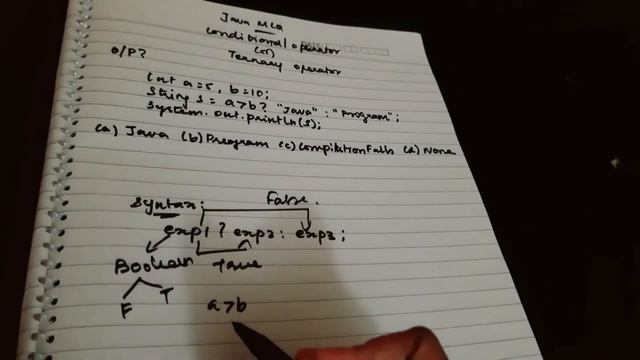 Java MCQ
Conditional operator
(or)
Ternary operator
O/P?
int a=5, b=10;
String s = a>b? "Java" : "Program";
System.out.println(s);
(a) Java (b) Program (c) Compilation Fails (d) None
Syntax:
False.
exp1 ? exp2 : exp3;
Boolean True
F T
a>b